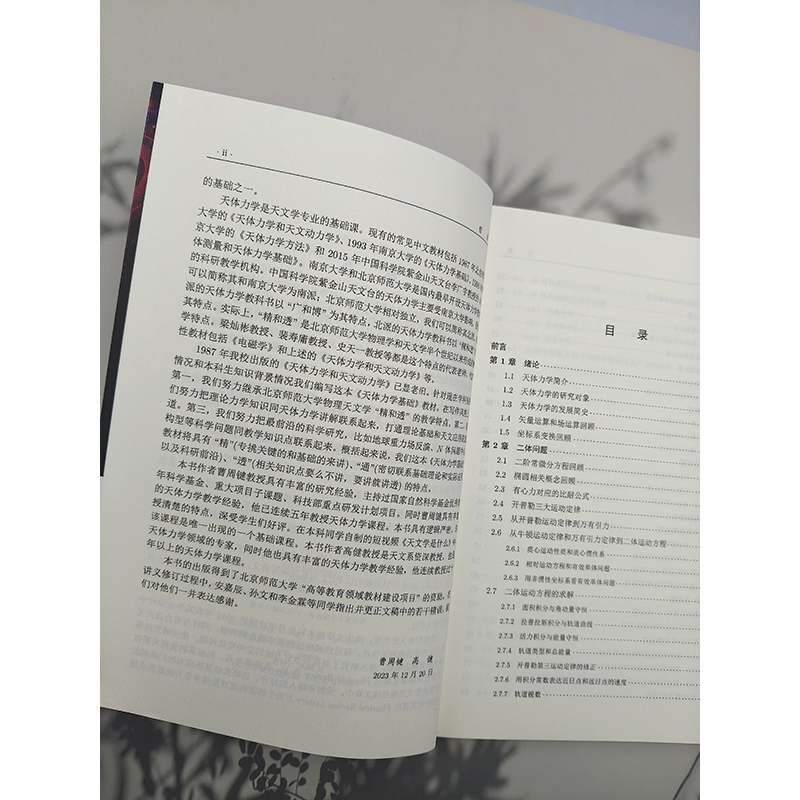 · ii ·
的基础之一。
天体力学是天文学专业的基础课。现有的常见中文教材包括 1987 年
大学的《天体力学和天文动力学》、1993 年南京大学的《天体力学基础》、
京大学的《天体力学方法》和 2015 年中国科学院紫金山天文台李广宇
体测量和天体力学基础》。南京大学和北京师范大学是国内最早开设天体力学
的科研教学机构。中国科学院紫金山天文台的天体力学主要受南京大学影响，
可以简称其和南京大学为南派；北京师范大学相对独立，我们可以简称其
派的天体力学教科书以“广和博”为其特点，北派的天体力学教科书以“精和透”
其特点。实际上，“精和透”是北京师范大学物理学和天文学半个世纪以来形成的
学特点。梁灿彬教授、裴寿镛教授、史天一教授等都是这个特点的代表老师，
性教材包括《电磁学》和上述的《天体力学和天文动力学》等。
1987 年我校出版的《天体力学和天文动力学》已显老旧。针对现在学科
情况和本科生知识背景情况我们编写这本《天体力学基础》教材。在写作
第一，我们努力继承北京师范大学物理天文学“精和透”的教学特点。第二，
们努力把理论力学知识同天体力学讲解联系起来，打通理论基础和天文应用
道。第三，我们努力把最前沿的科学研究，比如地球重力场反演、N 体问题中
构型等科学问题同教学知识点联系起来。概括起来说，我们这本《天体力学基础》
教材将具有“精”(专拣关键的和基础的来讲)、“通”(密切联系基础理论和实际
以及科研前沿)、“透”(相关知识点要么不讲，要讲就讲透) 的特点。
本书作者曹周键教授具有丰富的研究经验，主持过国家自然科学基金
年科学基金、重大项目子课题、科技部重点研发计划项目。同时曹周键具有
的天体力学教学经验，他已连续五年教授天体力学课程。本书具有逻辑严密、
授清楚的特点，深受学生们好评。在本科同学自制的短视频《天文学是什么》中，
该课程是唯一出现的一个基础课程。本书作者高健教授是天文系资深教授，
天体力学领域的专家，同时他也具有丰富的天体力学教学经验，他连续教授过
年以上的天体力学课程。
本书的出版得到了北京师范大学“高等教育领域教材建设项目”的资助。
讲义修订过程中，安嘉辰、孙文和李金霖等同学指出并更正文稿中的若干错误，
们对他们一并表达感谢。
曹周键 高健
2023 年 12 月 20 日
目 录
前言
第 1 章 绪论
1.1 天体力学简介
1.2 天体力学的研究对象
1.3 天体力学的发展简史
1.4 矢量运算和场运算回顾
1.5 坐标系变换回顾
第 2 章 二体问题
2.1 二阶常微分方程回顾
2.2 椭圆相关概念回顾
2.3 有心力对应的比耐公式
2.4 开普勒三大运动定律
2.5 从开普勒运动定律到万有引力
2.6 从牛顿运动定律和万有引力定律到二体运动方程
2.6.1 质心运动性质和质心惯性系
2.6.2 相对运动方程和有效单体问题
2.6.3 用非惯性坐标系看有效单体问题
2.7 二体运动方程的求解
2.7.1 面积积分与角动量守恒
2.7.2 拉普拉斯积分与轨道曲线
2.7.3 活力积分与能量守恒
2.7.4 轨道类型和总能量
2.7.5 开普勒第三运动定律的修正
2.7.6 用积分常数表达近日点和远日点的速度
2.7.7 轨道根数